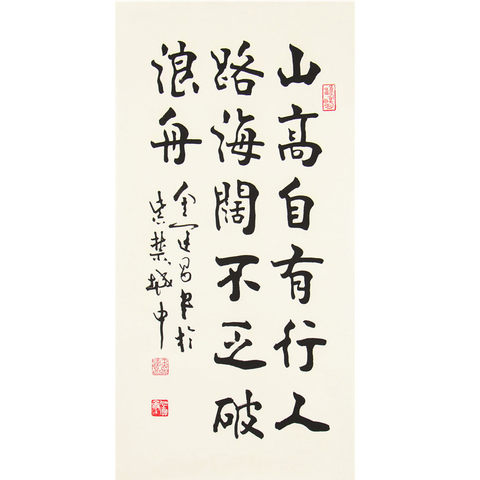 山高自有行人
路海闊不乏破
浪舟
金運昌书於
紫禁城中